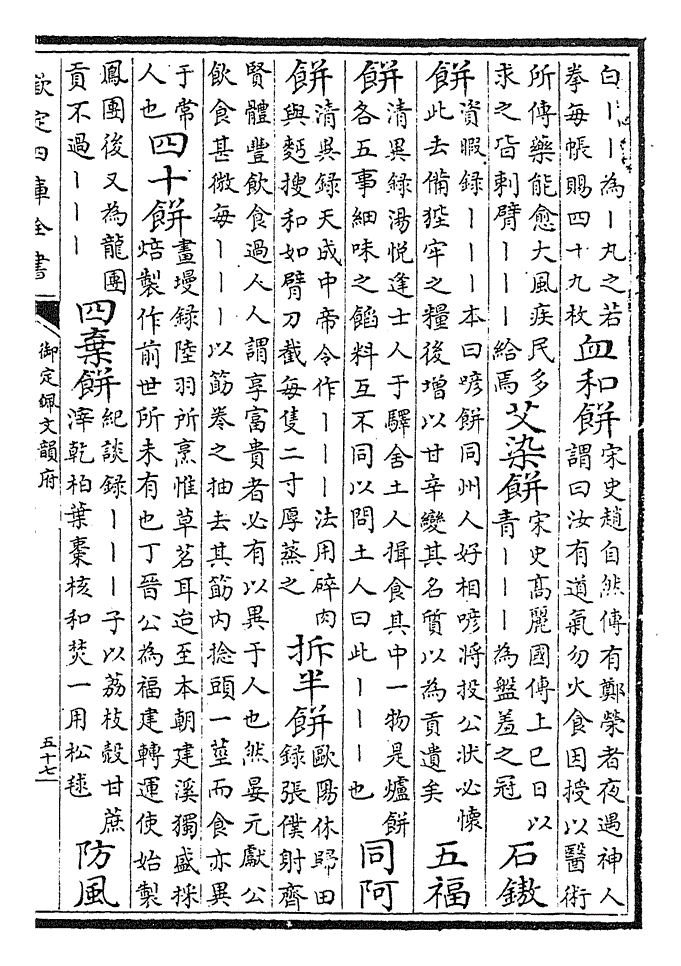 白丨丨為丨丸之若
拳每帳賜四十九枚
血和餅
宋史趙自然傳有鄭榮者夜遇神人
謂曰汝有道氣勿火食因授以醫術
所傳藥能愈大風疾民多
求之皆刺臂丨丨丨給焉
艾染餅
宋史髙麗國傳上巳日以
青丨丨丨為盤羞之冠
石鏊
餅
資暇録丨丨丨本曰喭餅同州人好相喭將投公狀必懷
此去備狴牢之糧後增以甘辛變其名質以為貢遺矣
五福
餅
清異録湯悦逢士人于驛舍士人揖食其中一物是爐餅
各五事細味之餡料互不同以問士人曰此丨丨丨也
同阿
餅
清異録天成中帝令作丨丨丨法用碎肉
與麪搜和如臂刀截每隻二寸厚蒸之
拆半餅
歐陽休歸田
録張僕射齊
賢體豐飲食過人人謂享富貴者必有以異于人也然晏元獻公
飲食甚微每丨丨丨以筯卷之抽去其筯内捻頭一莖而食亦異
于常
人也
四十餅
畫墁録陸羽所烹惟草茗耳迨至本朝建溪獨盛採
焙製作前世所未有也丁晉公為福建轉運使始製
鳳團後又為龍團
貢不過丨丨丨
四棄餅
紀談録丨丨丨子以荔枝殻甘蔗
滓乾柏葉棗核和焚一用松毬
防風
欽定四庫全書
御定佩文韻府
五十七